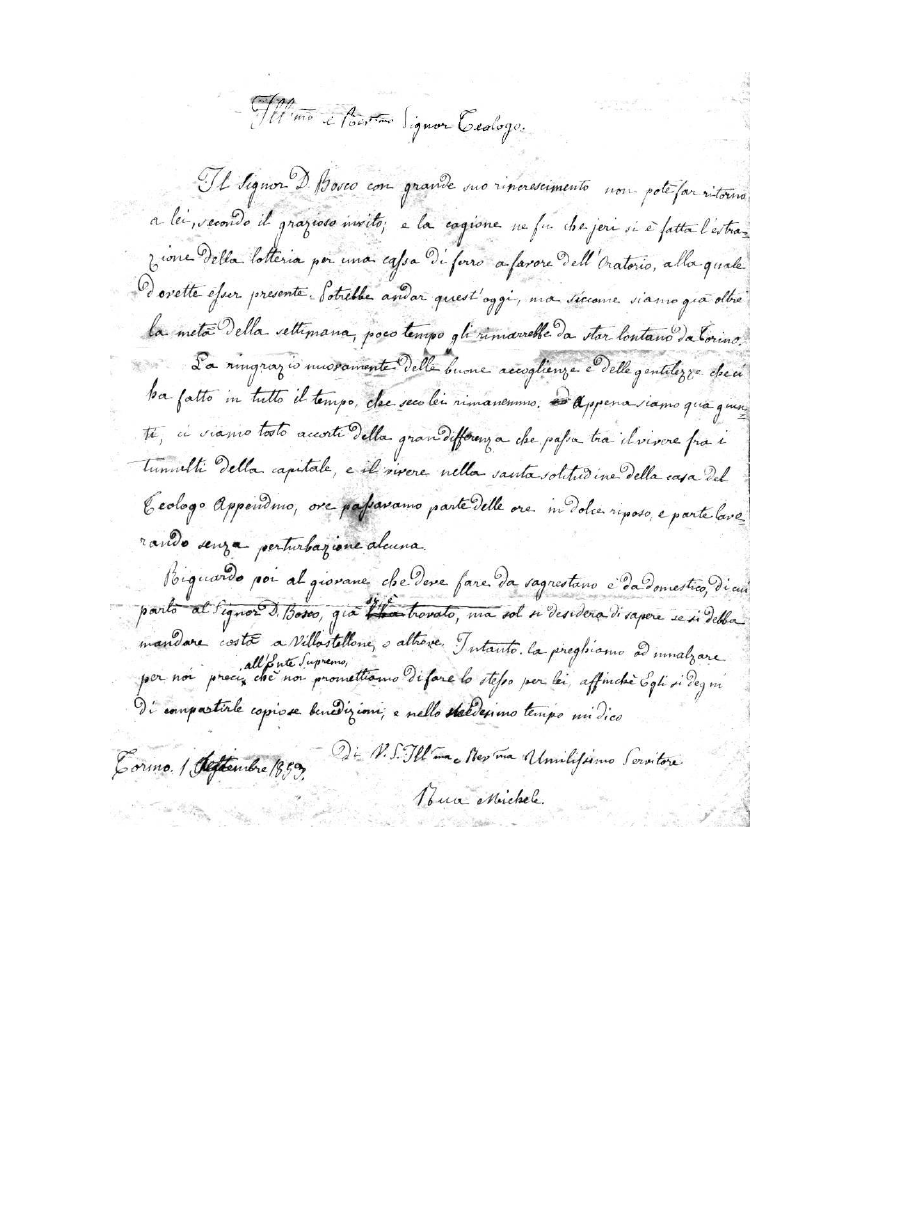 Ill.mo e Rev.mo Signor Teologo.
Il Signor D. Bosco con grande suo rincrescimento non potè far ritorno
a lei, secondo il grazioso invito; e la cagione ne fu che jeri si è fatta l'estra=
zione della lotteria per una cassa di ferro a favore dell'Oratorio, alla quale
dovette esser presente. Potrebbe andar quest'oggi, ma siccome siamo già oltre
la metà della settimana, poco tempo gli rimarrebbe da star lontano da Torino.
La ringrazio nuovamente delle buone accoglienze e delle gentilezze che ci
ha fatto in tutto il tempo, che seco lei rimanemmo. Appena siamo qua giun=
ti, ci siamo tosto accorti della gran differenza che passa tra il vivere fra i
tumulti della capitale, e il vivere nella santa solitudine della casa del
Teologo Appendino, ove passavamo parte delle ore in dolce riposo, e parte lavo
rando senza perturbazione alcuna.
Riguardo poi al giovane che deve fare da sagrestano e da domestico, di cui
parlò al Signor D. Bosco, già si è trovato, ma sol si desidera di sapere se si debba
mandare costà a Villastellone, o altrove. Intanto la preghiamo ad innalzare
per noi preci all'Ente Supremo, che noi promettiamo di fare lo stesso per lei, affinchè Egli si degni
di compartirle copiose benedizioni; e nello medesimo tempo mi dico
Di V. S. Ill.ma e Rev.ma Umilissimo Servitore
Torino. 1 Settembre 1853.
Rua Michele.